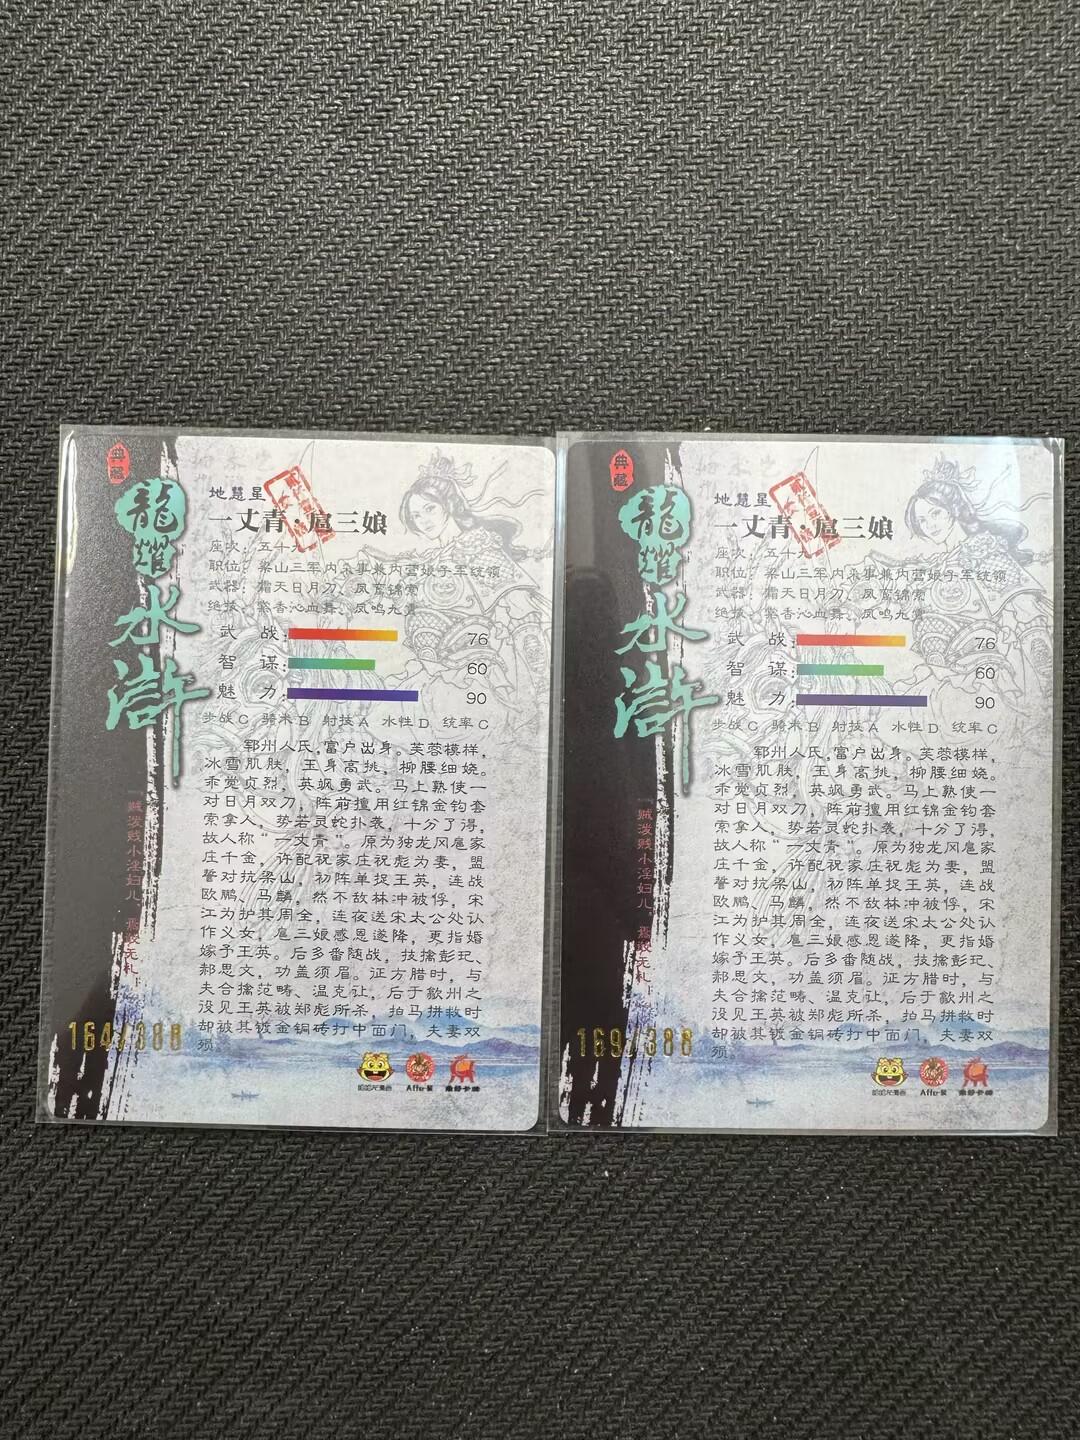 典藏
龍耀水滸
地慧星
一丈青·扈三娘
座次：五十九
职位：梁山三军内采事兼内营娘子军统领
武器：霜天日月刀、凤鸾锦索
绝技：
武 战：76
智 谋：60
魅 力：90
步战C 骑术B 射技A 水性D 统率C
郓州人氏，富户出身。芙蓉模样，
冰雪肌肤，玉身高挑，柳腰细娆。
乖觉贞烈，英飒勇武。马上熟使一
对日月双刀，阵前擅用红锦金钩套
索拿人，势若灵蛇扑袭，十分了得，
故人称“一丈青”。原为独龙风扈家
庄千金，许配祝家庄祝彪为妻，盟
誓对抗梁山，初阵单捉王英，连战
欧鹏、马麟，然不敌林冲被俘，宋
江为护其周全，连夜送宋太公处认
作义女，扈三娘感恩遂降，更指婚
嫁予王英。后多番随战，技擒彭玘、
郝思文，功盖须眉。证方腊时，与
夫合擒范畴、温克让，后于歙州之
没见王英被郑彪所杀，拍马拼救时
却被其镀金铜砖打中面门，夫妻双
殒。
贼泼贱小淫妇儿，焉敢无礼！
164/388
哈哈龙漫画
典藏
龍耀水滸
地慧星
一丈青·扈三娘
座次：五十九
职位：梁山三军内采事兼内营娘子军统领
武器：霜天日月刀、凤鸾锦索
绝技：
武 战：76
智 谋：60
魅 力：90
步战C 骑术B 射技A 水性D 统率C
郓州人氏，富户出身。芙蓉模样，
冰雪肌肤，玉身高挑，柳腰细娆。
乖觉贞烈，英飒勇武。马上熟使一
对日月双刀，阵前擅用红锦金钩套
索拿人，势若灵蛇扑袭，十分了得，
故人称“一丈青”。原为独龙风扈家
庄千金，许配祝家庄祝彪为妻，盟
誓对抗梁山，初阵单捉王英，连战
欧鹏、马麟，然不敌林冲被俘，宋
江为护其周全，连夜送宋太公处认
作义女，扈三娘感恩遂降，更指婚
嫁予王英。后多番随战，技擒彭玘、
郝思文，功盖须眉。证方腊时，与
夫合擒范畴、温克让，后于歙州之
没见王英被郑彪所杀，拍马拼救时
却被其镀金铜砖打中面门，夫妻双
殒。
贼泼贱小淫妇儿，焉敢无礼！
169/388
哈哈龙漫画